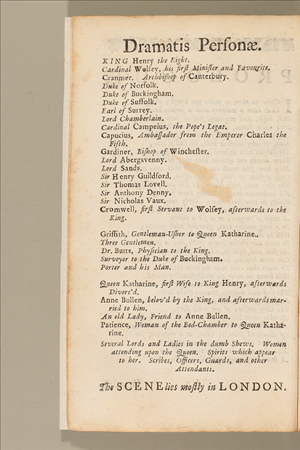 Dramatis Personæ.
KING Henry the Eight.
Cardinal Wolsey, his first Minister and Favourite.
Cranmer, Archbishop of Canterbury.
Duke of Norfolk.
Duke of Buckingham.
Duke of Suffolk.
Earl of Surrey.
Lord Chamberlain.
Cardinal Campeius, the Pope's Legat.
Capucius, Ambassador from the Emperor Charles the
Fifth.
Gardiner, Bishop of Winchester.
Lord Abergavenny.
Lord Sands.
Sir Henry Guildford.
Sir Thomas Lovell.
Sir Anthony Denny.
Sir Nicholas Vaux.
Cromwell, first Servant to Wolsey, afterwards to the
King.
Griffith, Gentleman-Usher to Queen Katharine.
Three Gentlemen.
Dr. Butts, Physician to the King.
Surveyor to the Duke of Buckingham.
Porter and his Man.
Queen Katharine, first Wife to King Henry, afterwards
Divorc'd.
Anne Bullen, belov'd by the King, and afterwards mar-
ried to him.
An old Lady, Friend to Anne Bullen.
Patience, Woman of the Bed-Chamber to Queen Katha-
rine.
Several Lords and Ladies in the dumb Shews. Women
attending upon the Queen. Spirits which appear
to her. Scribes, Officers, Guards, and other
Attendants.
The SCENE lies mostly in LONDON.